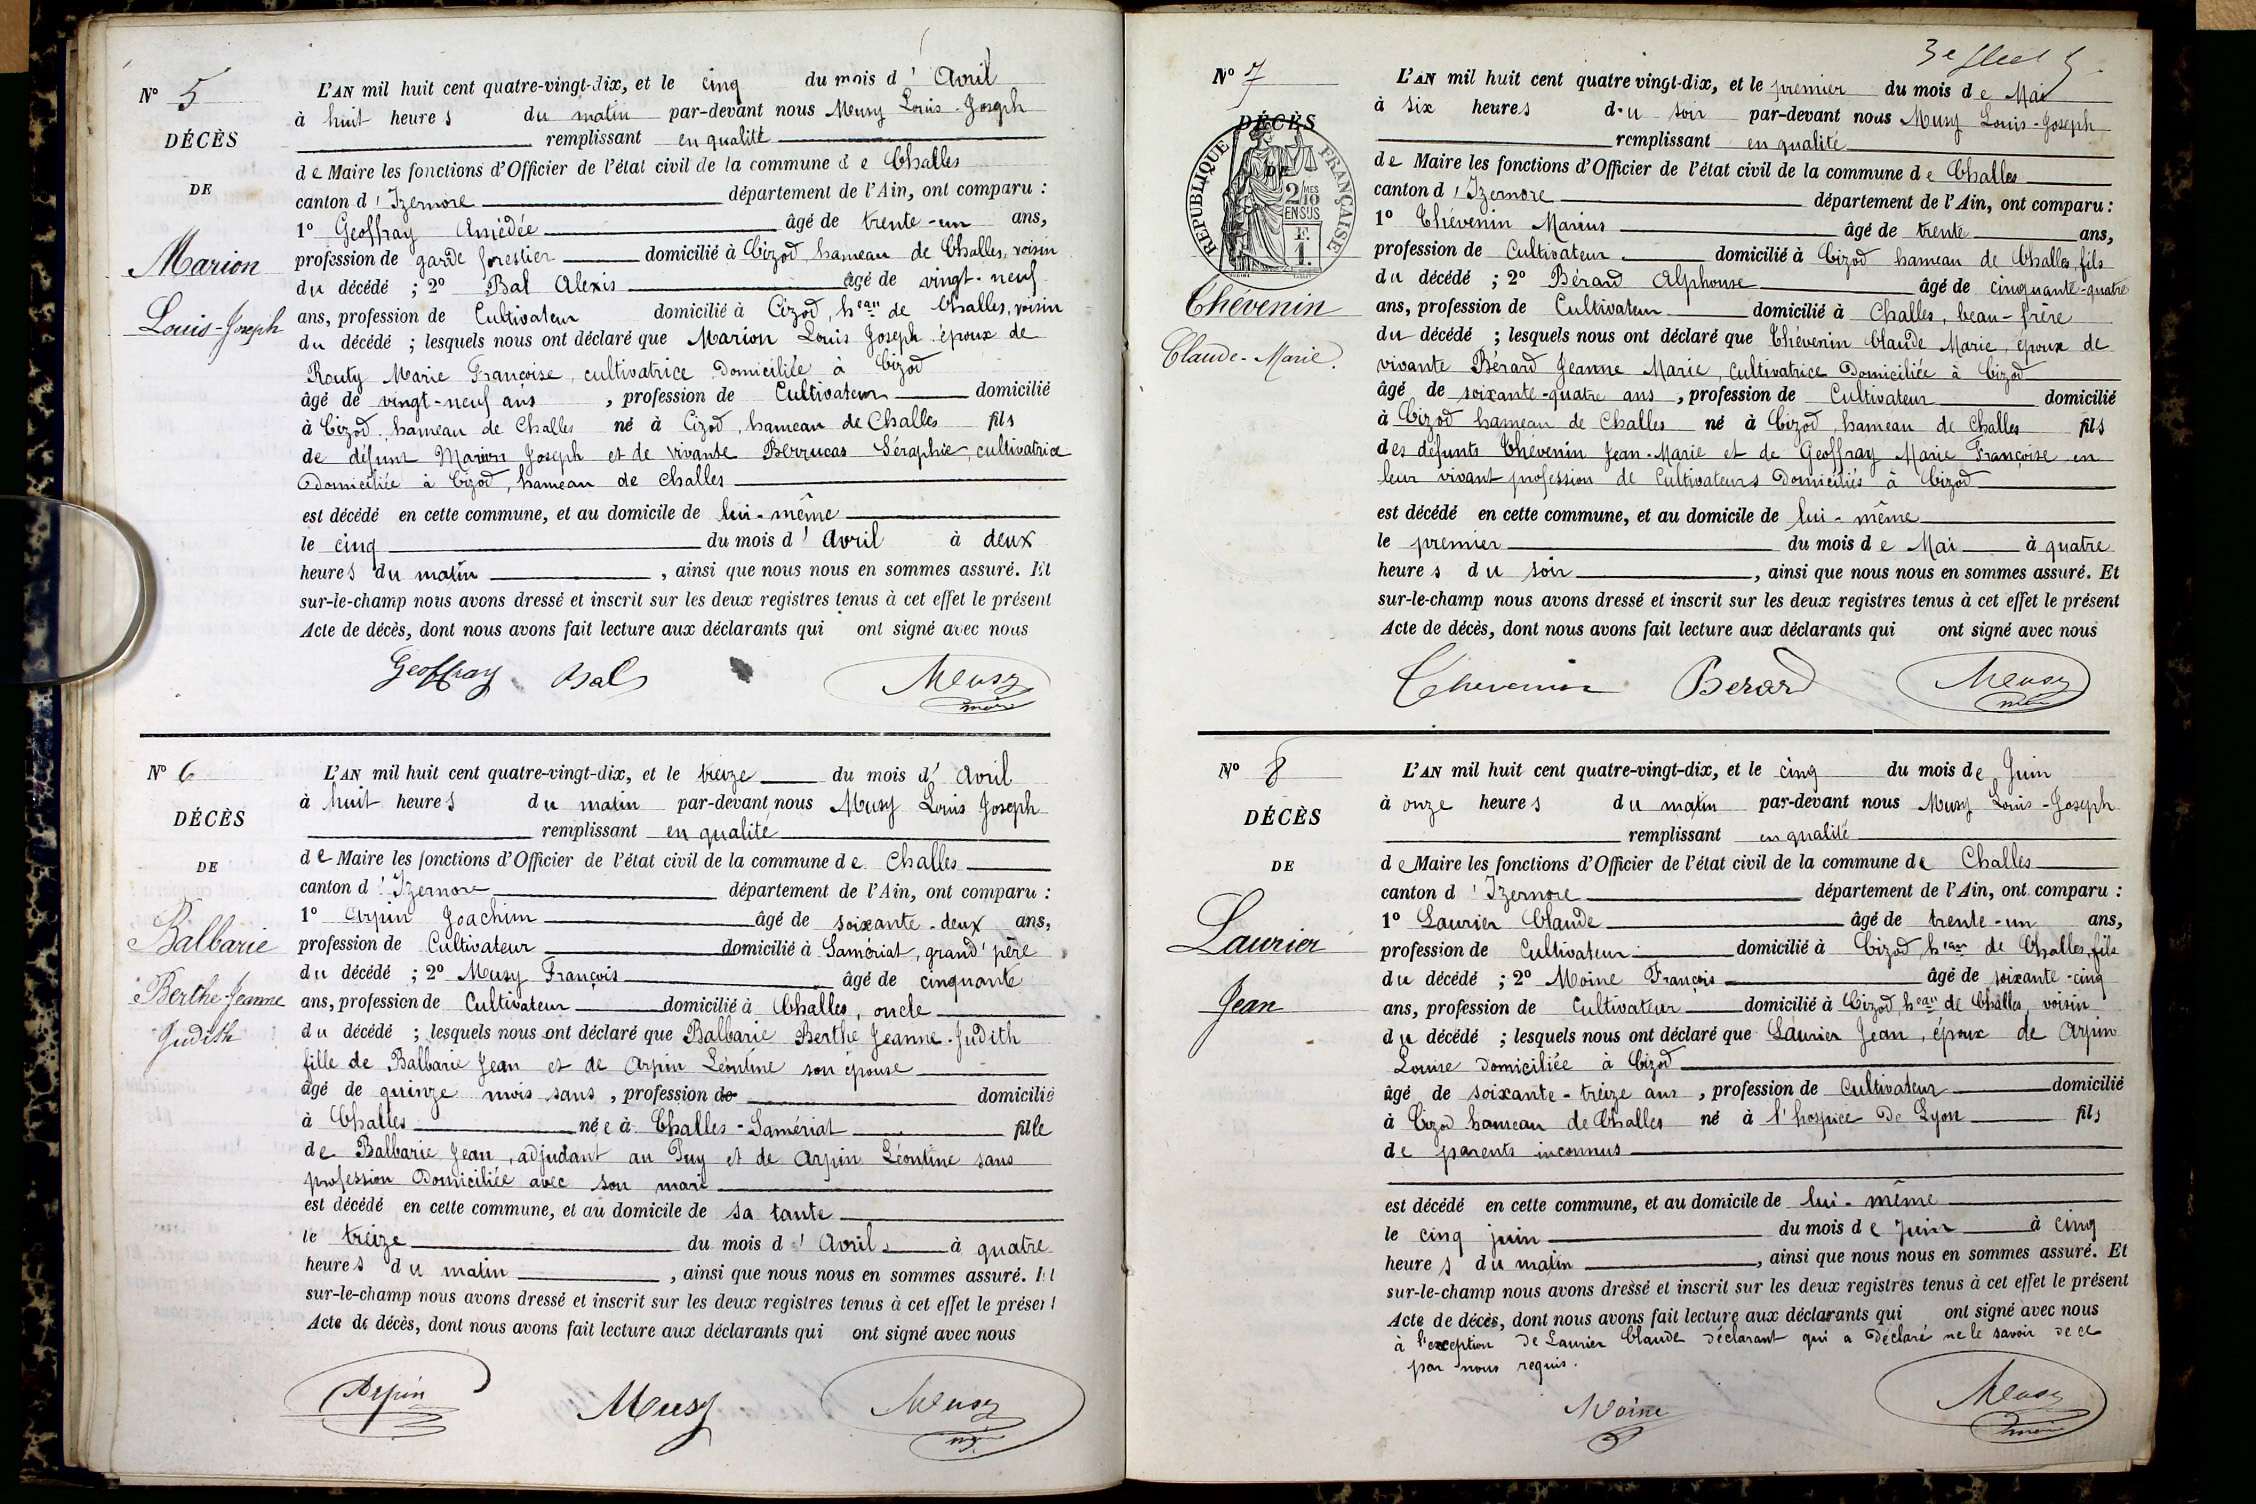 N° 5
DÉCÈS
DE
Marion
Louis-Joseph
L'AN mil huit cent quatre-vingt-dix, et le cinq du mois d'Avril
à huit heures du matin par-devant nous Musy Louis-Joseph
remplissant en qualité
de Maire les fonctions d'Officier de l'état civil de la commune de Challes
canton d'Izernore département de l'Ain, ont comparu :
1° Geoffray Amédée âgé de trente-un ans,
profession de garde forestier domicilié à Cizod, hameau de Challes, voisin
du décédé ; 2° Bal Alexis âgé de vingt-neuf
ans, profession de Cultivateur domicilié à Cizod, heau de Challes, voisin
du décédé ; lesquels nous ont déclaré que Marion Louis Joseph époux de
Routy Marie Françoise, cultivatrice domiciliée à Cizod
âgé de vingt-neuf ans, profession de Cultivateur domicilié
à Cizod, hameau de Challes né à Cizod, hameau de Challes fils
de défunt Marion Joseph et de vivante Berrucas Séraphie, cultivatrice
domiciliée à Cizod, hameau de Challes
est décédé en cette commune, et au domicile de lui-même
le cinq du mois d'Avril à deux
heures du matin, ainsi que nous nous en sommes assuré. Et
sur-le-champ nous avons dressé et inscrit sur les deux registres tenus à cet effet le présent
Acte de décès, dont nous avons fait lecture aux déclarants qui ont signé avec nous
Geoffray Bal Musy
maire
N° 6
DÉCÈS
DE
Balbarie
Berthe-Jeanne
Judith
L'AN mil huit cent quatre-vingt-dix, et le treize du mois d'Avril
à huit heures du matin par-devant nous Musy Louis Joseph
remplissant en qualité
de Maire les fonctions d'Officier de l'état civil de la commune de Challes
canton d'Izernore département de l'Ain, ont comparu :
1° Arpin Joachim âgé de soixante-deux ans,
profession de Cultivateur domicilié à Samériat, grand'père
du décédé ; 2° Musy François âgé de cinquante
ans, profession de Cultivateur domicilié à Challes, oncle
du décédé ; lesquels nous ont déclaré que Balbarie Berthe Jeanne-Judith
fille de Balbarie Jean et de Arpin Léontine son épouse
âgé de quinze mois sans, profession de domicilié
à Challes née à Challes-Samériat fille
de Balbarie Jean, adjudant au Puy et de Arpin Léontine sans
profession domiciliée avec son mari
est décédé en cette commune, et au domicile de sa tante
le treize du mois d'Avril à quatre
heures du matin, ainsi que nous nous en sommes assuré. Et
sur-le-champ nous avons dressé et inscrit sur les deux registres tenus à cet effet le présent
Acte de décès, dont nous avons fait lecture aux déclarants qui ont signé avec nous
Arpin Musy Musy
3e
N° 7
DÉCÈS
DE
RÉPUBLIQUE FRANÇAISE
2/10 MES
EN SUS
F.
1.
Thévenin
Claude-Marie
L'AN mil huit cent quatre vingt-dix, et le premier du mois de Mai
à six heures du soir par-devant nous Musy Louis-Joseph
remplissant en qualité
de Maire les fonctions d'Officier de l'état civil de la commune de Challes
canton d'Izernore département de l'Ain, ont comparu :
1° Thévenin Marius âgé de trente ans,
profession de Cultivateur domicilié à Cizod hameau de Challes, fils
du décédé ; 2° Bérard Alphonse âgé de cinquante-quatre
ans, profession de Cultivateur domicilié à Challes, beau-frère
du décédé ; lesquels nous ont déclaré que Thévenin Claude Marie, époux de
vivante Bérard Jeanne Marie, cultivatrice domiciliée à Cizod
âgé de soixante-quatre ans, profession de Cultivateur domicilié
à Cizod hameau de Challes né à Cizod, hameau de Challes fils
des défunts Thévenin Jean-Marie et de Geoffray Marie Françoise en
leur vivant profession de Cultivateurs domiciliés à Cizod
est décédé en cette commune, et au domicile de lui-même
le premier du mois de Mai à quatre
heures du soir, ainsi que nous nous en sommes assuré. Et
sur-le-champ nous avons dressé et inscrit sur les deux registres tenus à cet effet le présent
Acte de décès, dont nous avons fait lecture aux déclarants qui ont signé avec nous
Thevenin Berard Musy
N° 8
DÉCÈS
DE
Laurier
Jean
L'AN mil huit cent quatre-vingt-dix, et le cinq du mois de Juin
à onze heures du matin par-devant nous Musy Louis-Joseph
remplissant en qualité
de Maire les fonctions d'Officier de l'état civil de la commune de Challes
canton d'Izernore département de l'Ain, ont comparu :
1° Laurier Claude âgé de trente-un ans,
profession de Cultivateur domicilié à Cizod heau de Challes, fils
du décédé ; 2° Moine François âgé de soixante-cinq
ans, profession de Cultivateur domicilié à Cizod, heau de Challes, voisin
du décédé ; lesquels nous ont déclaré que Laurier Jean, époux de Arpin
Louise domiciliée à Cizod
âgé de soixante-treize ans, profession de Cultivateur domicilié
à Cizod hameau de Challes né à l'hospice de Lyon fils
de parents inconnus
est décédé en cette commune, et au domicile de lui-même
le cinq juin du mois de Juin à cinq
heures du matin, ainsi que nous nous en sommes assuré. Et
sur-le-champ nous avons dressé et inscrit sur les deux registres tenus à cet effet le présent
Acte de décès, dont nous avons fait lecture aux déclarants qui ont signé avec nous
à l'exception de Laurier Claude déclarant qui a déclaré ne le savoir de ce
par nous requis.
Moine Musy
maire